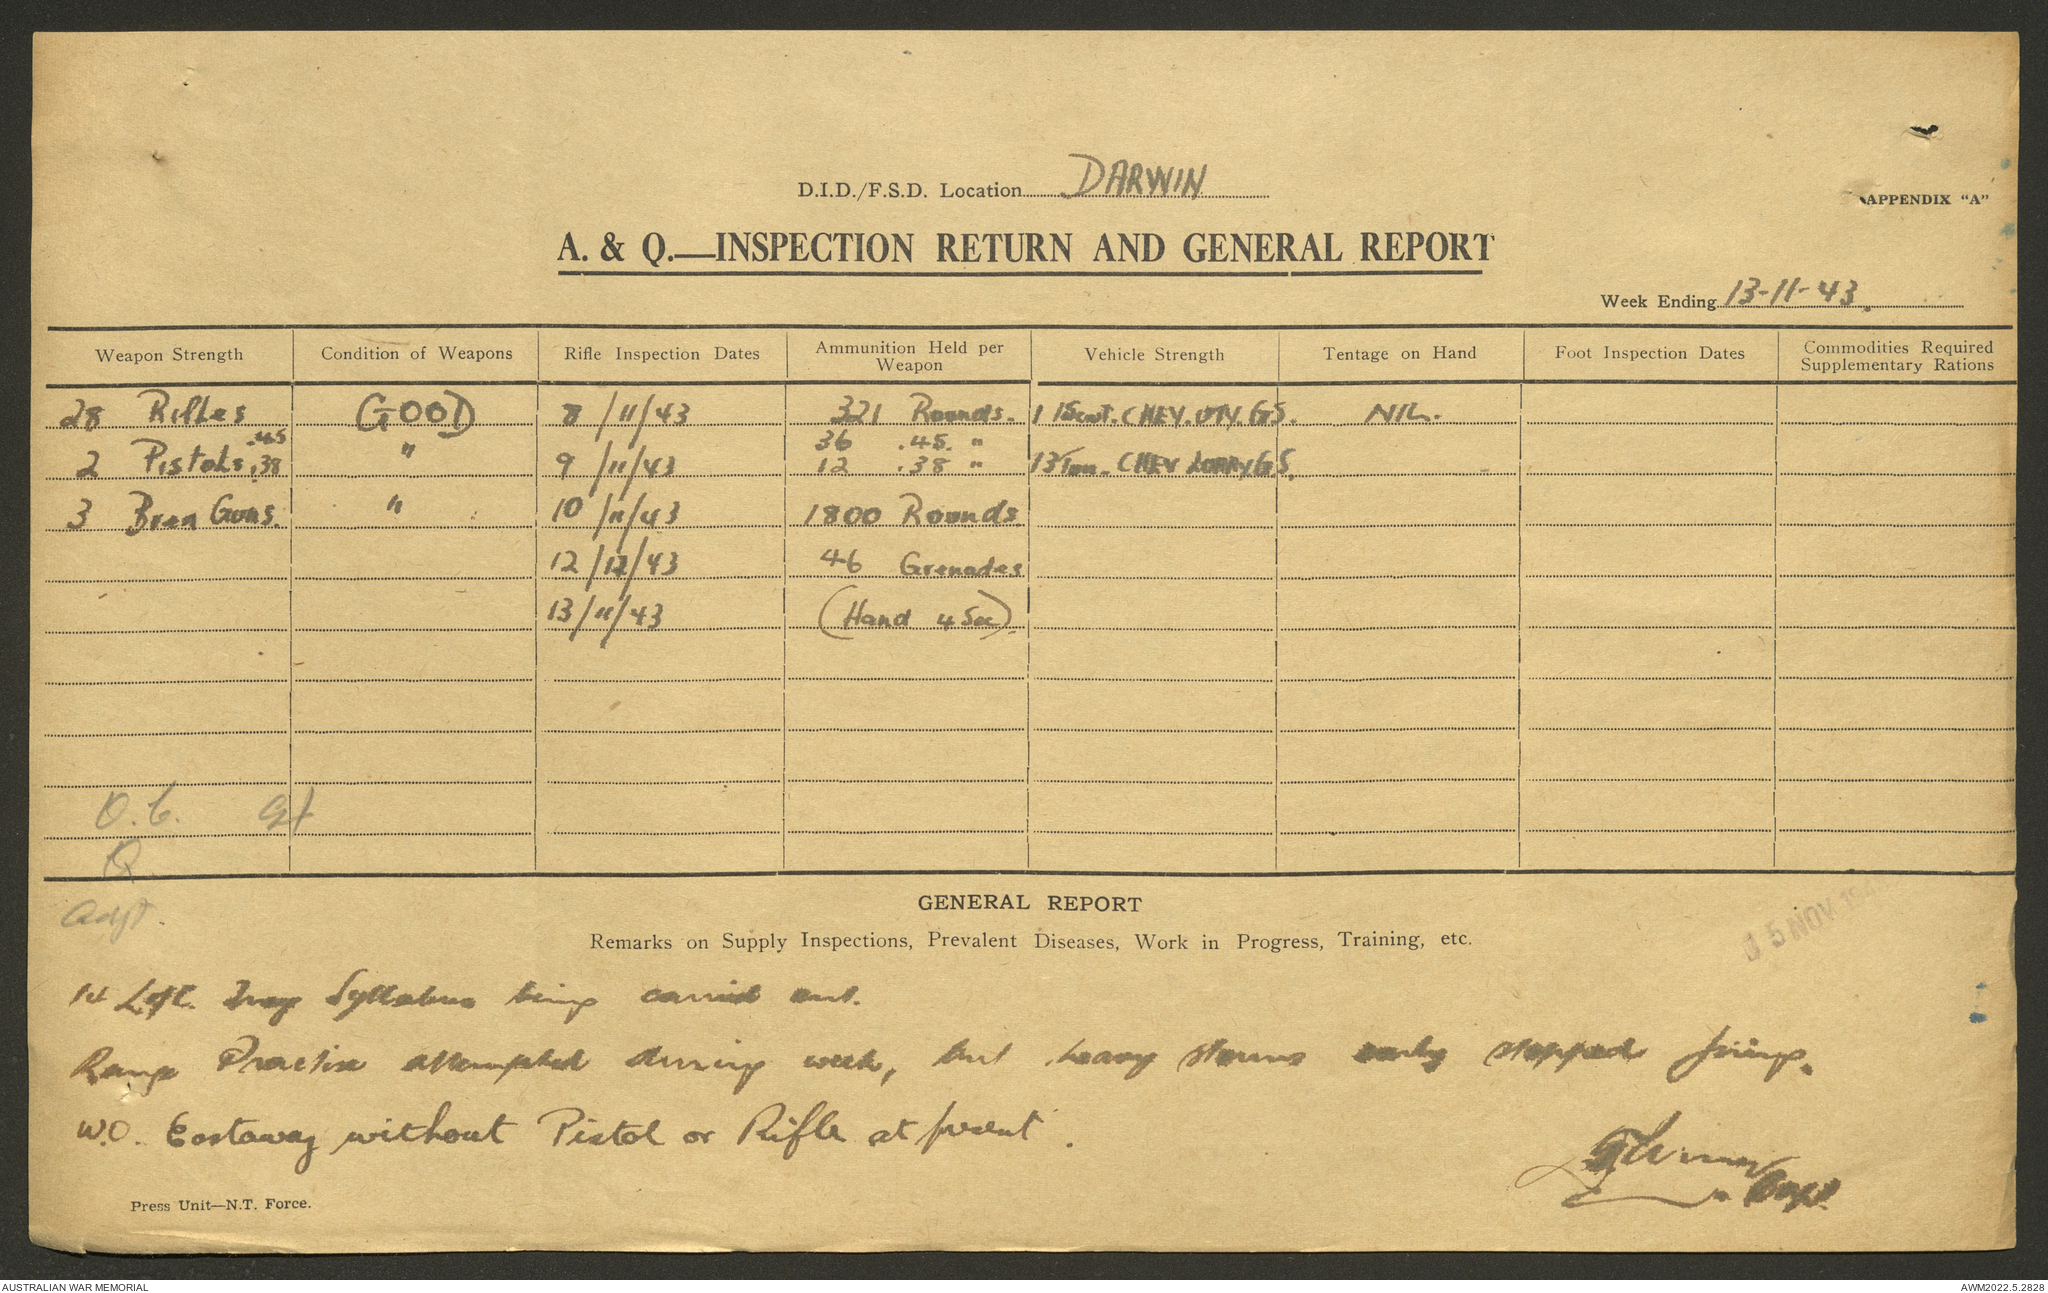 D.I.D./F.S.D. Location DARWIN
APPENDIX "A"
A. & Q.—INSPECTION RETURN AND GENERAL REPORT
Week Ending 13-11-43.
Weapon Strength Condition of Weapons Rifle Inspection Dates Ammunition Held per Weapon Vehicle Strength Tentage on Hand Foot Inspection Dates Commodities Required Supplementary Rations
28 Rifles GOOD 8/11/43 321 Rounds. 1 15cwt. CHEV. UTY. GS. NIL.
.45 36 .45. "
2 Pistols .38 " 9/11/43 12 .38 " 1 3Ton. CHEV LORRY GS.
3 Bren Guns. " 10/11/43 1800 Rounds
12/12/43 46 Grenades
13/11/43 (Hand 4 Sec).
O.C.
Q
Adjt.
GENERAL REPORT
15 NOV 194
Remarks on Supply Inspections, Prevalent Diseases, Work in Progress, Training, etc.
Syllabus being carried out.
Range Practise attempted during week, but heavy storms early stopped firing.
W.O. Eastaway without Pistol or Rifle at present.
Capt.
Press Unit—N.T. Force.
AUSTRALIAN WAR MEMORIAL
AWM2022.5.2828